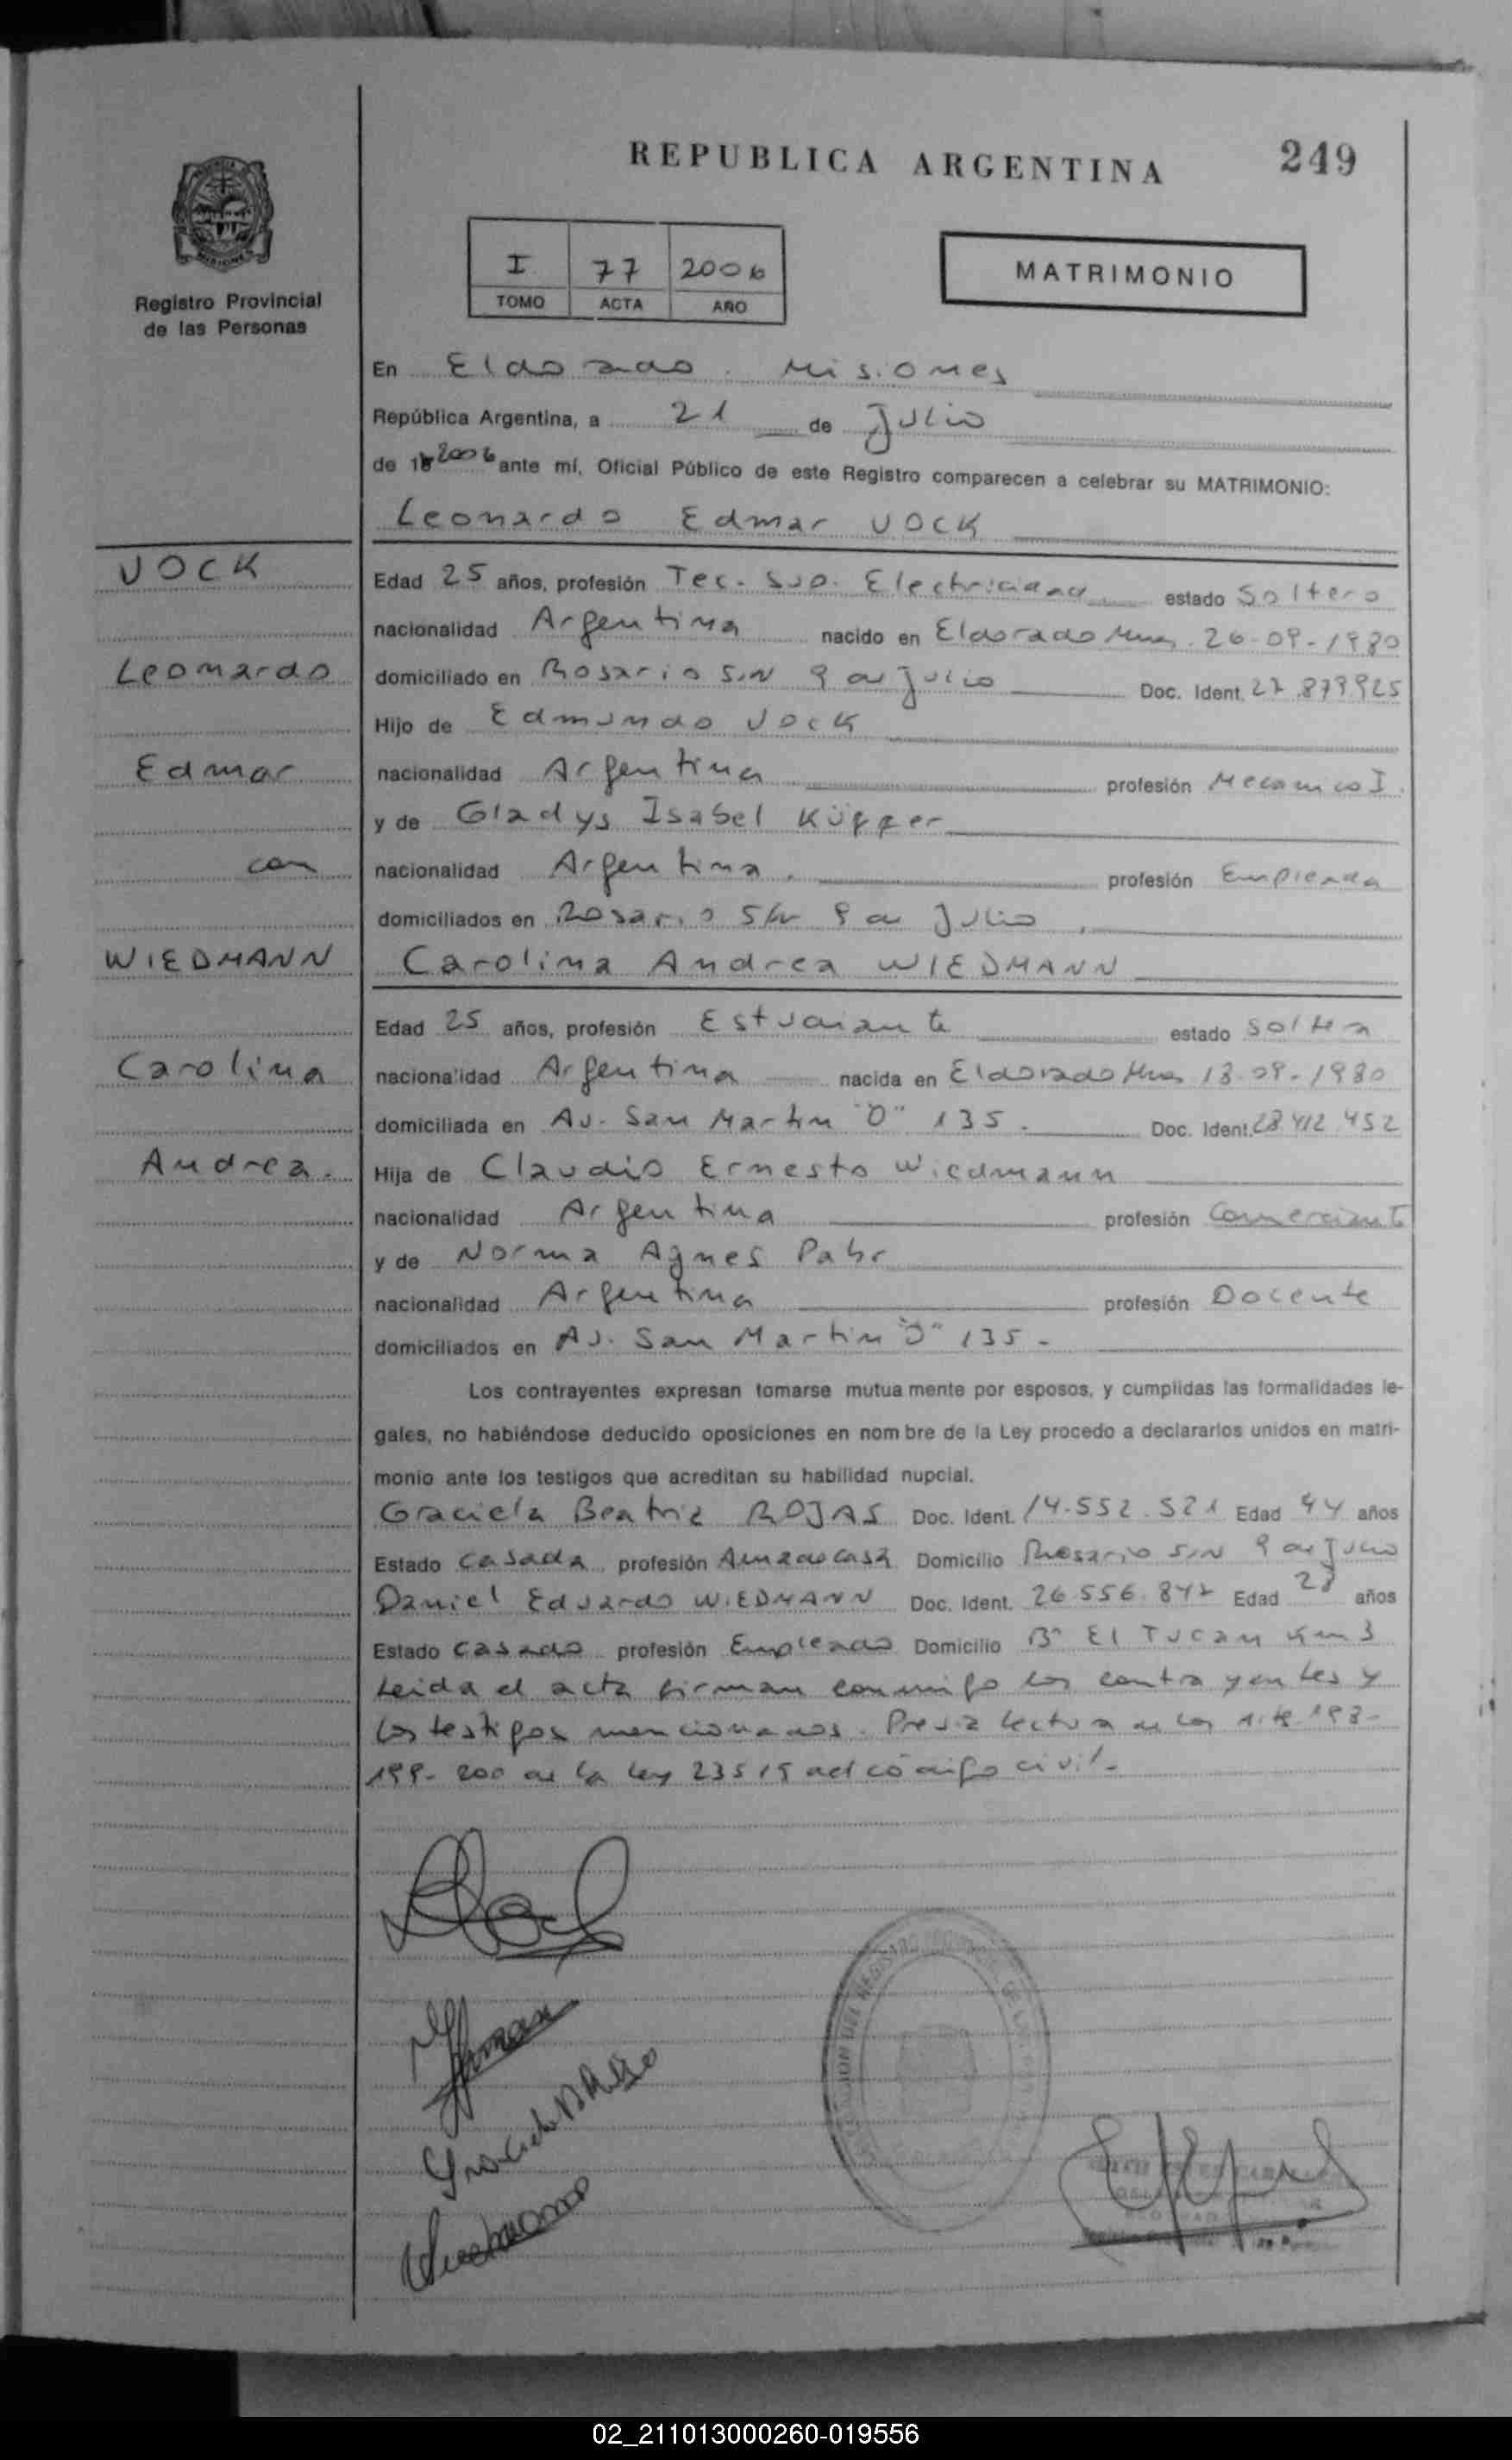 REPUBLICA ARGENTINA 249
I 77 2006
TOMO ACTA AÑO
MATRIMONIO
Registro Provincial
de las Personas
En Eldorado. Misiones
República Argentina, a 21 de Julio
de 2006 ante mí, Oficial Público de este Registro comparecen a celebrar su MATRIMONIO:
Leonardo Edmar VOCK
VOCK
Edad 25 años, profesión Tec. Sup. Electricidad estado Soltero
nacionalidad Argentina nacido en Eldorado Mnes. 26-09-1980
Leonardo
domiciliado en Rosario S/N 9 de Julio Doc. Ident. 27.879925
Hijo de Edmundo Vock
Edmar
nacionalidad Argentina profesión Mecanico I.
y de Gladys Isabel Küpper
con
nacionalidad Argentina. profesión Empleada
domiciliados en Rosario S/N 9 de Julio.
WIEDMANN
Carolina Andrea WIEDMANN
Edad 25 años, profesión Estudiante estado Soltera
Carolina
nacionalidad Argentina nacida en Eldorado Mnes 13-09-1980
domiciliada en Av. San Martin "O" 135. Doc. Ident. 28412.452
Andrea.
Hija de Claudio Ernesto Wiedmann
nacionalidad Argentina profesión Comerciante
y de Norma Agnes Pabr
nacionalidad Argentina profesión Docente
domiciliados en Av. San Martin "O" 135-
Los contrayentes expresan tomarse mutua mente por esposos, y cumplidas las formalidades le-
gales, no habiéndose deducido oposiciones en nom bre de la Ley procedo a declararlos unidos en matri-
monio ante los testigos que acreditan su habilidad nupcial.
Graciela Beatriz ROJAS Doc. Ident. 14.552.521 Edad 44 años
Estado Casada profesión Ama de casa Domicilio Rosario S/N 9 de Julio
Daniel Eduardo WIEDMANN Doc. Ident. 26.556.847 Edad 28 años
Estado Casado profesión Empleado Domicilio B° El Tucan Km 3
Leida el acta firman conmigo los contrayentes y
los testigos mencionados. Previa lectura de los Arts. 198-
199-200 de la ley 23515 del código civil.
02_211013000260-019556